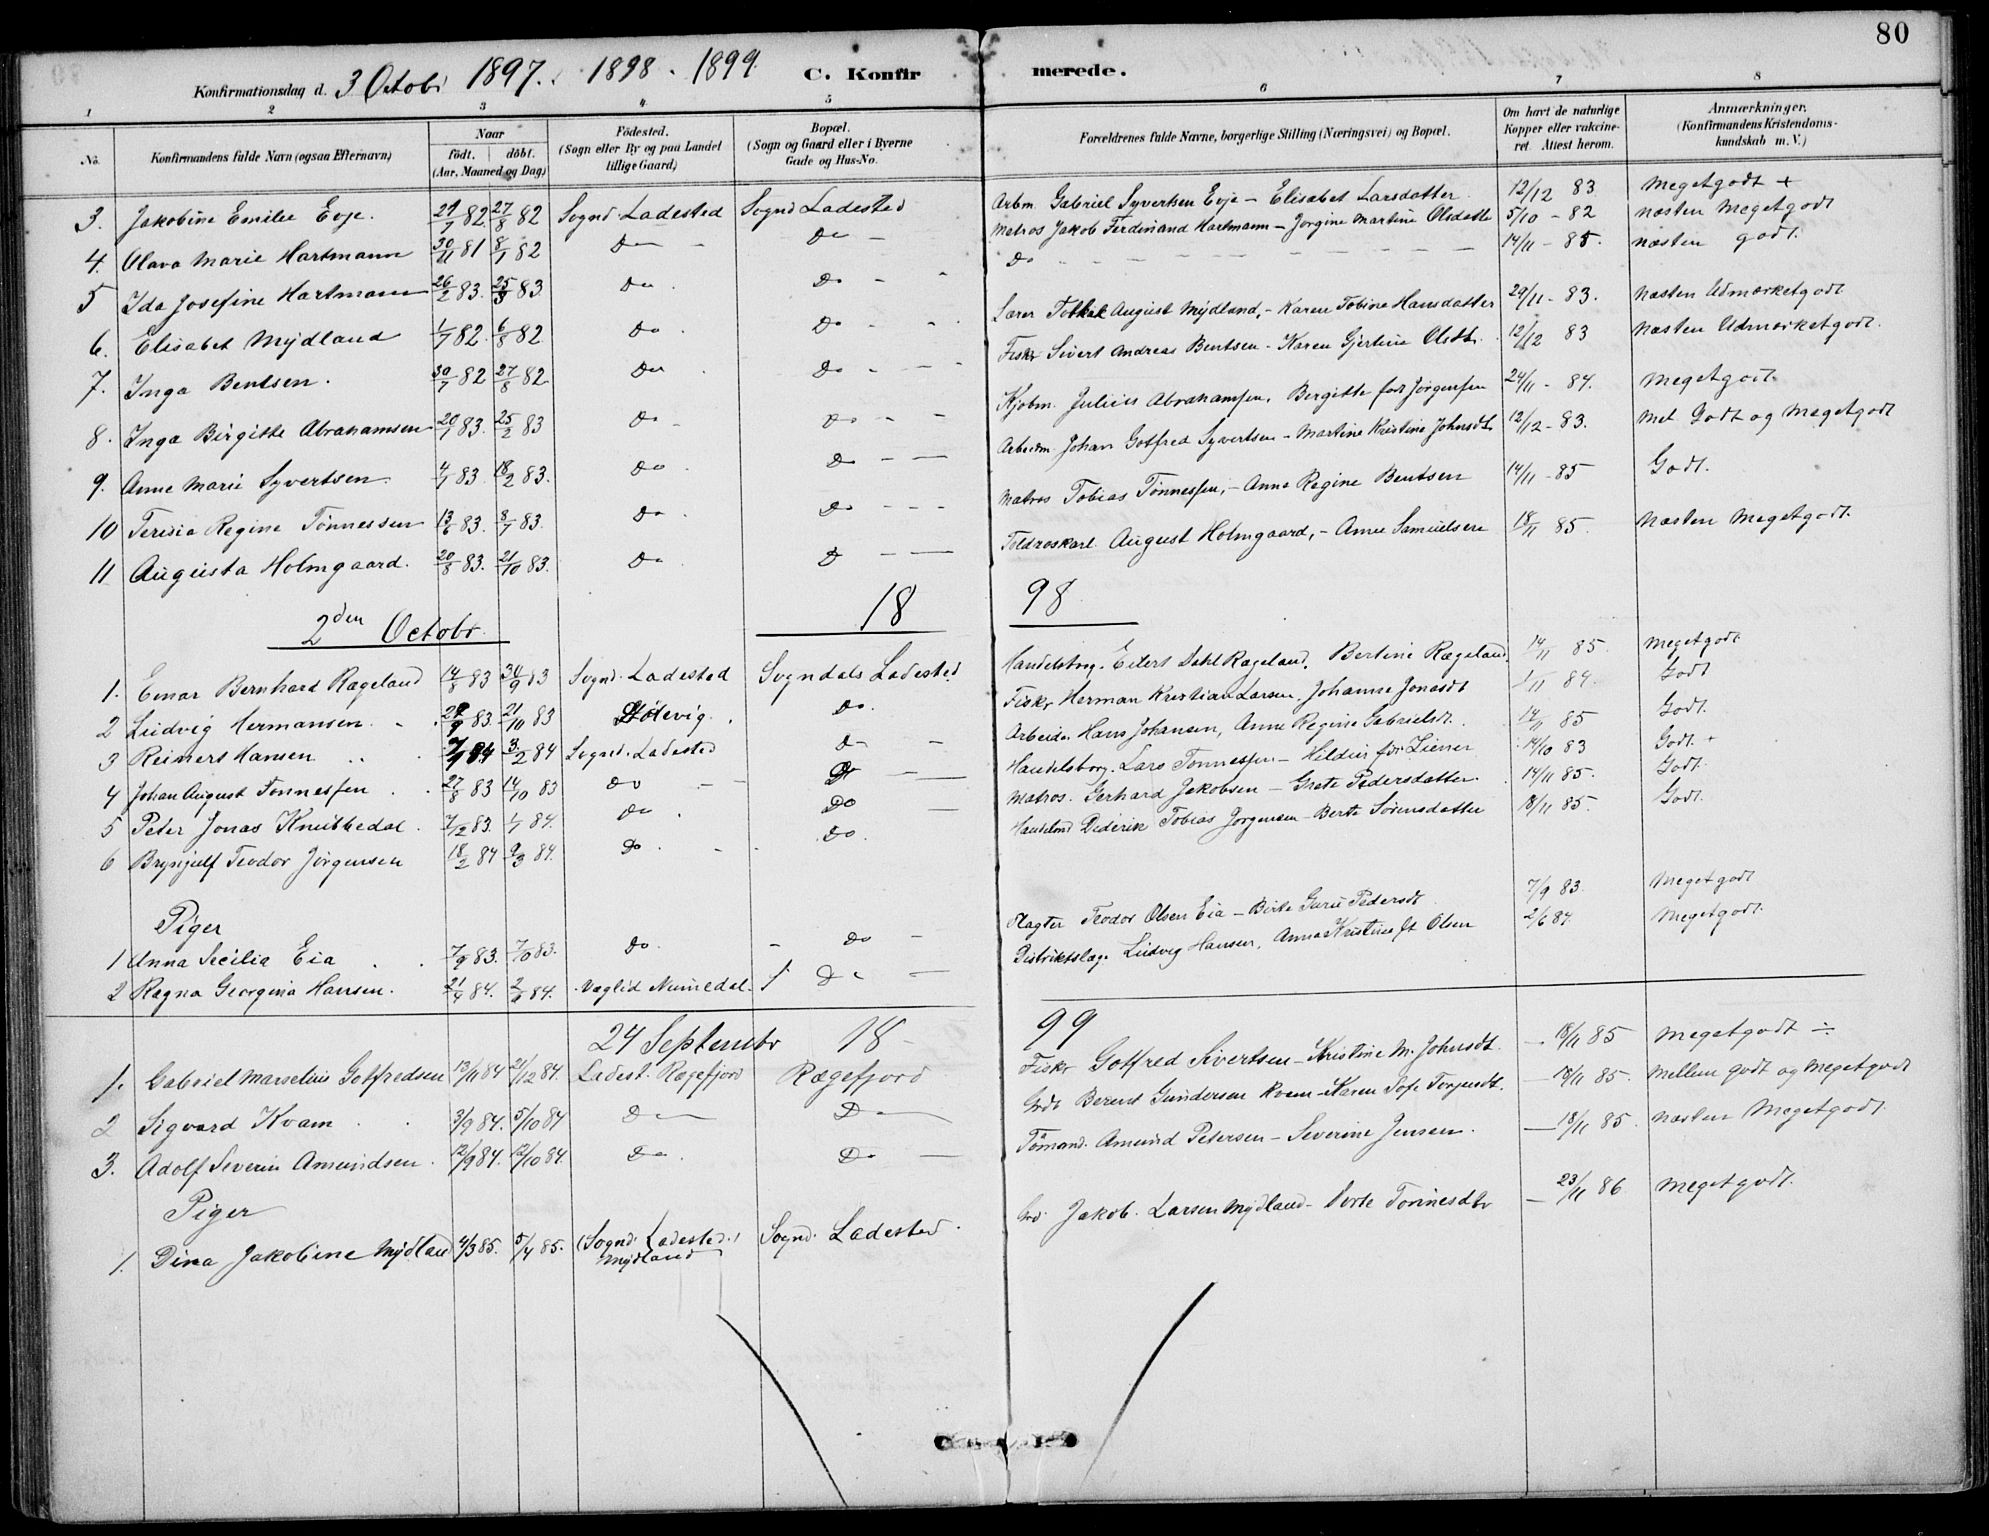 80
Konfirmationsdag d. 3 Octobr 1897. 1898. 1899. C. Konfirmerede.
1 2 3 4 5 6 7 8
No. Konfirmandens fulde Navn (ogsaa Efternavn) Naar födt. döbt. (Aar, Maaned og Dag) Födested. (Sogn eller By og paa Landet tillige Gaard) Bopæl. (Sogn og Gaard eller i Byerne Gade og Hus-No. Forældrenes fulde Navne, borgerlige Stilling (Næringsvei) og Bopæl. Om havt de naturlige Kopper eller vakcineret. Attest herom. Anmærkninger. (Konfirmandens Kristendomskundskab m. V.)
3. Jakobine Emilie Evje. 29/7 82. 27/8 82 Sognd. Ladested Sognd Ladested Arbm. Gabriel Syvertsen Evje – Elisabet Larsdatter 12/12 83 Megetgodt +
4. Olava Marie Hartmann 30/11 81 8/1 82 Do – Do – Matros Jakob Ferdinand Hartmann – Jorgine Martine Olsdatter 5/10 – 82 næsten Megetgodt
5 Ida Josefine Hartmann 26/2 83. 25/3 83 Do Do – Do – – – 14/11 – 85. næsten godt.
6. Elisabet Mydland 1/7 82. 6/8 82. Do. Do – – Lærer August Mydland, – Karen Tobine Hansdatter 29/11 – 83. Næsten Udmærketgodt
7. Inga Bentsen. 30/7 82 27/8 82 Do Do – – Fiskr Sivert Andreas Bentsen – Karen Gjertine Olsdt. 12/12 83 Næsten Udmærketgodt.
8. Inga Birgitte Abrahamsen 20/1 83. 25/2 83 Do – Do – – Kjöbm. Julius Abrahamsen, Bergitte föd Jörgensen 24/11 – 84. Megetgodt.
9. Anne Marie Syvertsen 4/1 83. 18/2 83. Do. Do – – Arbeidm. Johan Gotfred Syvertsen – Martine Kristine Johnsdt. 12/12 – 83. Mel Godt og Megetgodt
10 Teresia Regine Tönnessen 13/6 83. 8/7 83. Do Do – – – Matros Tobias Tönnessen, – Anna Regine Bentsen 14/11 – 85 Godt.
11 Augusta Holmgaard. 20/8 83. 21/10 83. Do D – – Toldroskarl. August Holmgaard, – Anne Samuelsen 18/11 85. Næsten Megetgodt.
2den Octobr. 18 98
1. Einar Bernhard Rægeland 14/8 83 30/9 83 Sognd. Ladested Sogndals Ladested Handelsborg. Eilert Dahl Rageland. Bertine Rægeland. 14/11 85. Megetgodt.
2 Ludvig Hermansen. 83. 21/10 83 Do. Fiskr Herman Kristian Larsen, Johanne Jonasdt 84. Godt
3 Reinert Hansen 84 3/2 84 Sognd. Ladested Do – Arbeider Hans Johansen, Anne Regine Gabrielsdt. 14/11 85 Godt.
4 Johan August Tönnessen. 27/8 83 14/10 83 Do – Do – Handelsborg. Lars Tönnessen – född Ziener 14/10 83 Godt. +
5 Peter Jonas Knibbedal. 7/12 83. 1/1 84. Do. Do – Matros. Gerhard Jakobsen – Grete Pedersdatter. 14/11 85. Godt.
6 Brynjulf Teodor Jörgensen 18/2 84 9/3 84. Do. – Do. Diderik Tobias Jörgensen – Berte Sörensdatter 18/11 85. Godt.
Piger
1 Anna Secilia Eia. 7/9 83. 7/10 83. Do. – Do – Teodor Olsen Eia – Berte Gurie Pedersdt. 7/9 83. Megetgodt
2 Ragna Georgina Hansen. 21/4 84. 84. Do – Distriktslæge Ludvig Hansen, Anna Kristine Olsen 2/6 84. Megetgodt.
24 Septembr 18 – 99
1. Gabriel Marselius Gotfredsen 13/11 84 21/12 84. Ladest. Rægefjord Rægefjord Fiskr Gotfred Sivertsen – Kristine M. Johnsdt. – 18/11 85 Megetgodt ÷
2 Sigvard Kvam. 3/9 84. 5/10 84 Do Do Berent Gundersen Kvam – Karen Sofe Torjersdt. – 18/11 85. Mellem godt og Megetgodt
3. Adolf Severin Amundsen. 12/9 84. 12/10 84. Do. Do – Tömand. Amund Petersen – Severine Jensen. – 18/11 85. Næsten Megetgodt.
Piger
1. Dina Jakobine Mydland 4/3 85. 5/4 85. (Sognd. Ladested.) Mydland Sognd. Ladested. Jakob. Larsen Mydland – Dorte Tönnesdtr – 23/11 86. Megetgodt.